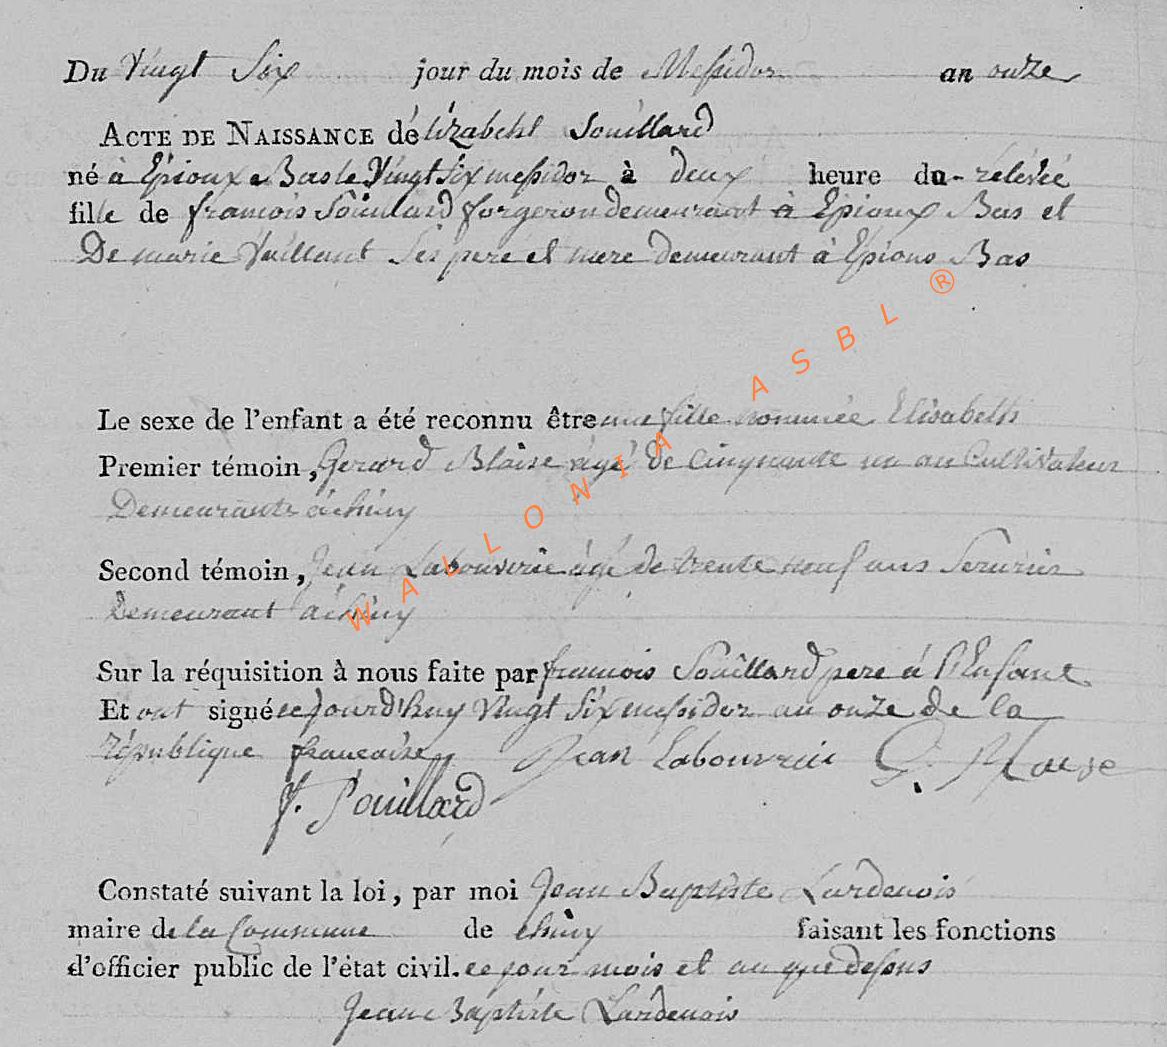 Du Vingt Six jour du mois de Messidor an onze
ACTE DE NAISSANCE de élizabeht Souillard
né à Epioux Bas le Vingt Six messidor à deux heure du relevée
fille de francois Souillard forgeron demeurant à Epioux Bas et
De marie Vaillant Ses pere et mere demeurant à Epioux Bas
Le sexe de l'enfant a été reconnu être une fille nommée Elisabeth
Premier témoin, Gerard Blaise agé de Cinquante un an Cultivateur
Demeurante à chiny
Second témoin, Jean Labouverie agé de trente neuf ans Serurier
Demeurant à chiny
Sur la réquisition à nous faite par francois Souillard pere á l'Enfant
Et ont signé ce jourd'huy Vingt Six messidor an onze de la
république francaise Jean Labouverie G. Blaise
f. Souillard
Constaté suivant la loi, par moi Jean Baptiste Lardenois
maire de la Commune de chiny faisant les fonctions
d'officier public de l'état civil. ce jour mois et an que dessus
Jean Baptiste Lardenois
WALLONIA ASBL ®